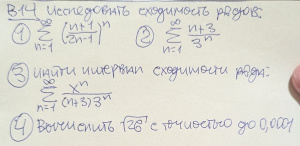 В14 Исследовать сходимость рядов:
① ∑_{n=1}^{∞} ((n+1)/(2n-1))^n ② ∑_{n=1}^{∞} (n+3)/3^n
③ Найти интервал сходимости ряда:
∑_{n=1}^{∞} x^n/((n+3)3^n)
④ Вычислить √26 с точностью до 0,0001